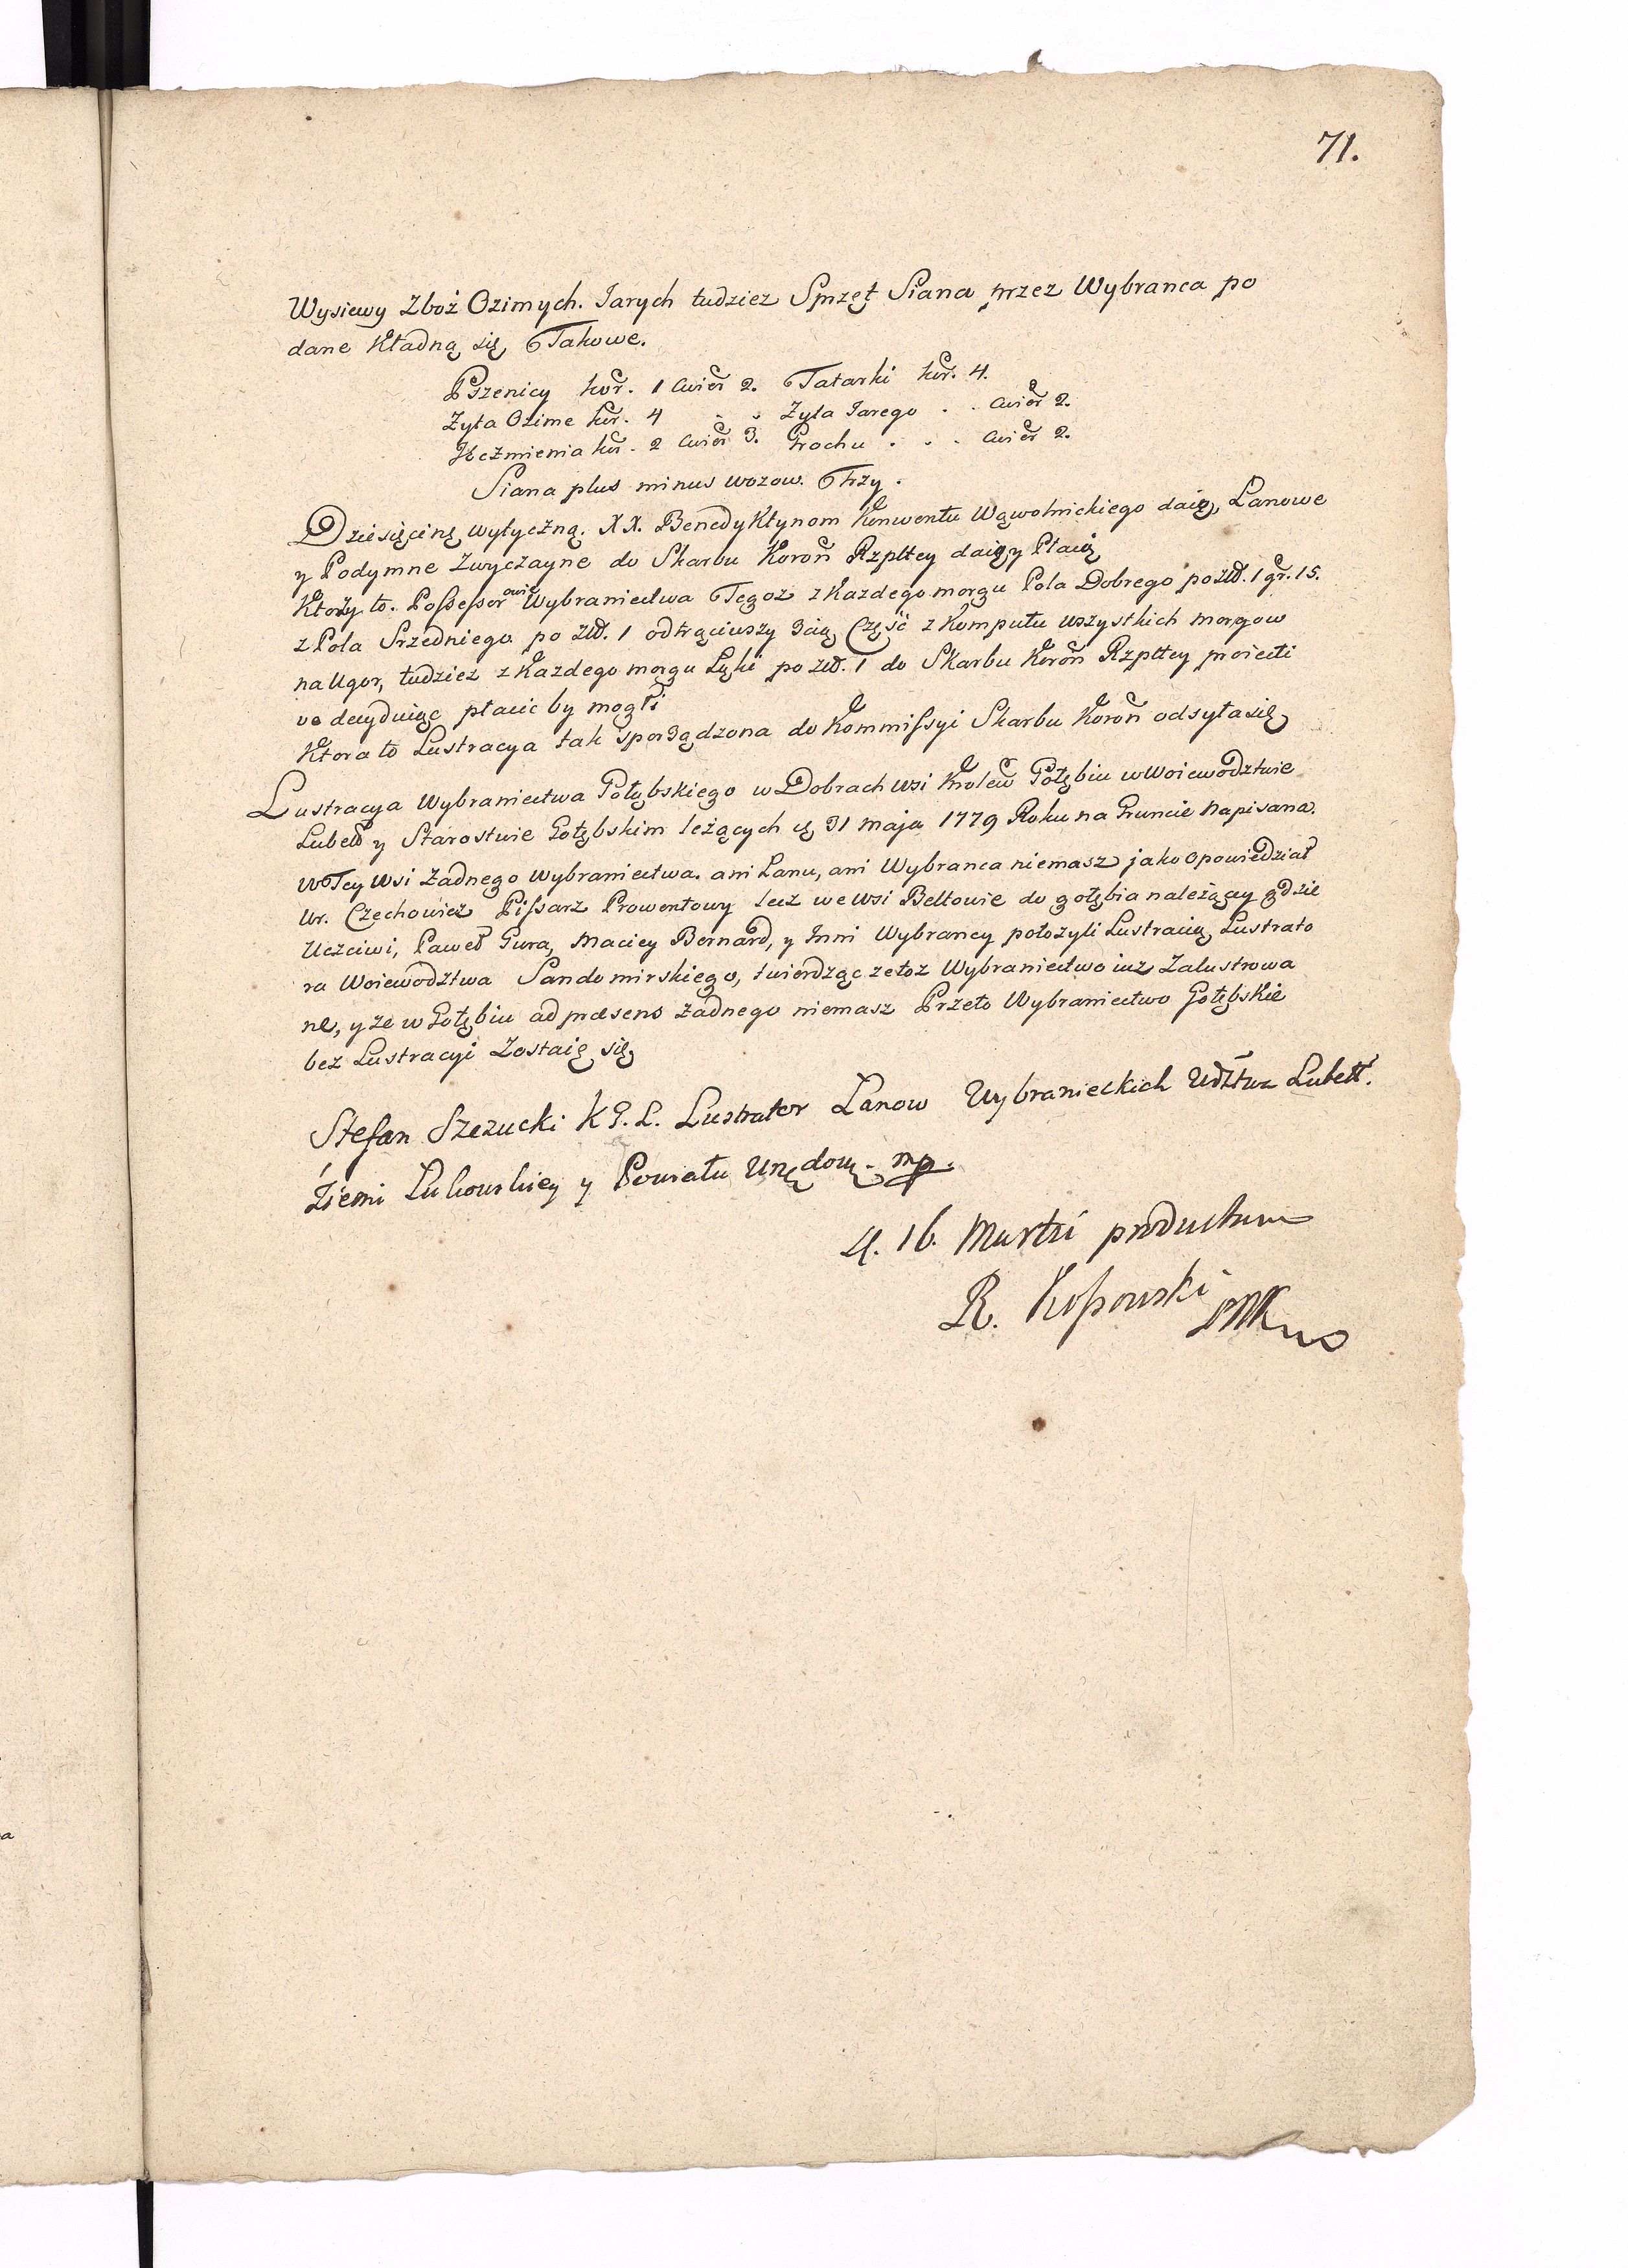 71.
Wysiewy Zboż Ozimych. Jarych tudziez Sprzęt Siana przez Wybranca po
dane Kładną się Takowe.
Pszenicy kor. 1 Cwier 2. Tatarki kor. 4.
Zyta Ozime kor. 4 . . Zyta Jarego . . Cwier 2.
Jęczmienia kor. 2 Cwier 3. Grochu . . . Cwier 2.
Siana plus minus wozow. Trzy.
Dziesięcinę wytyczną. XX. Benedyktynom Konwentu Wąwolnickiego daię, Lanowe
y Podymne Zwyczayne do Skarbu Koron Rzpltey daią y Płacą
Ktorzy to. Possessorowie Wybraniectwa Tegoz z Kazdego morgu Pola Dobrego po Złł. 1 gr. 15.
z Pola Srzedniego po Złł. 1 odtrąciwszy 3cią Część z Komputu wszystkich morgow
na Ugor, tudziez z Kazdego morgu Łąki po Złł. 1 do Skarbu Koron Rzpltey
płacic by mogli
Ktora to Lustracya tak sporządzona do Kommissyi Skarbu Koron odsyła się
Lustracya Wybraniectwa Gołębskiego w Dobrach wsi Krolew Gołębiu w Woiewodztwie
Lubell y Starostwie Gołębskim leżących d 31 Maja 1779 Roku na Gruncie Napisana.
W Tey Wsi Zadnego Wybraniectwa. ani Lanu, ani Wybranca niemasz jako opowiedział
Ur. Czechowicz Pissarz Prowentowy lecz we wsi Bełtowie do gołębia należącey gdzie
Uczciwi, Paweł Gura, Maciey Bernard, y Inni Wybrancy położyli Lustracią Lustrato
ra Woiewodztwa Sandomirskiego, twierdząc ze toz Wybraniectwo iuz Zalustrowa
ne, y ze w Gołębiu ad præsens żadnego niemasz Przeto Wybraniectwo Gołębskie
bez Lustracyi Zostaię się
Stefan Szczucki K G. L. Lustrator Lanow Wybranieckich Wdztwa Lubell.
Ziemi Łukowskiey y Powiatu Urzędow. mp.
4. 16. Martii productum
R. Kossowski